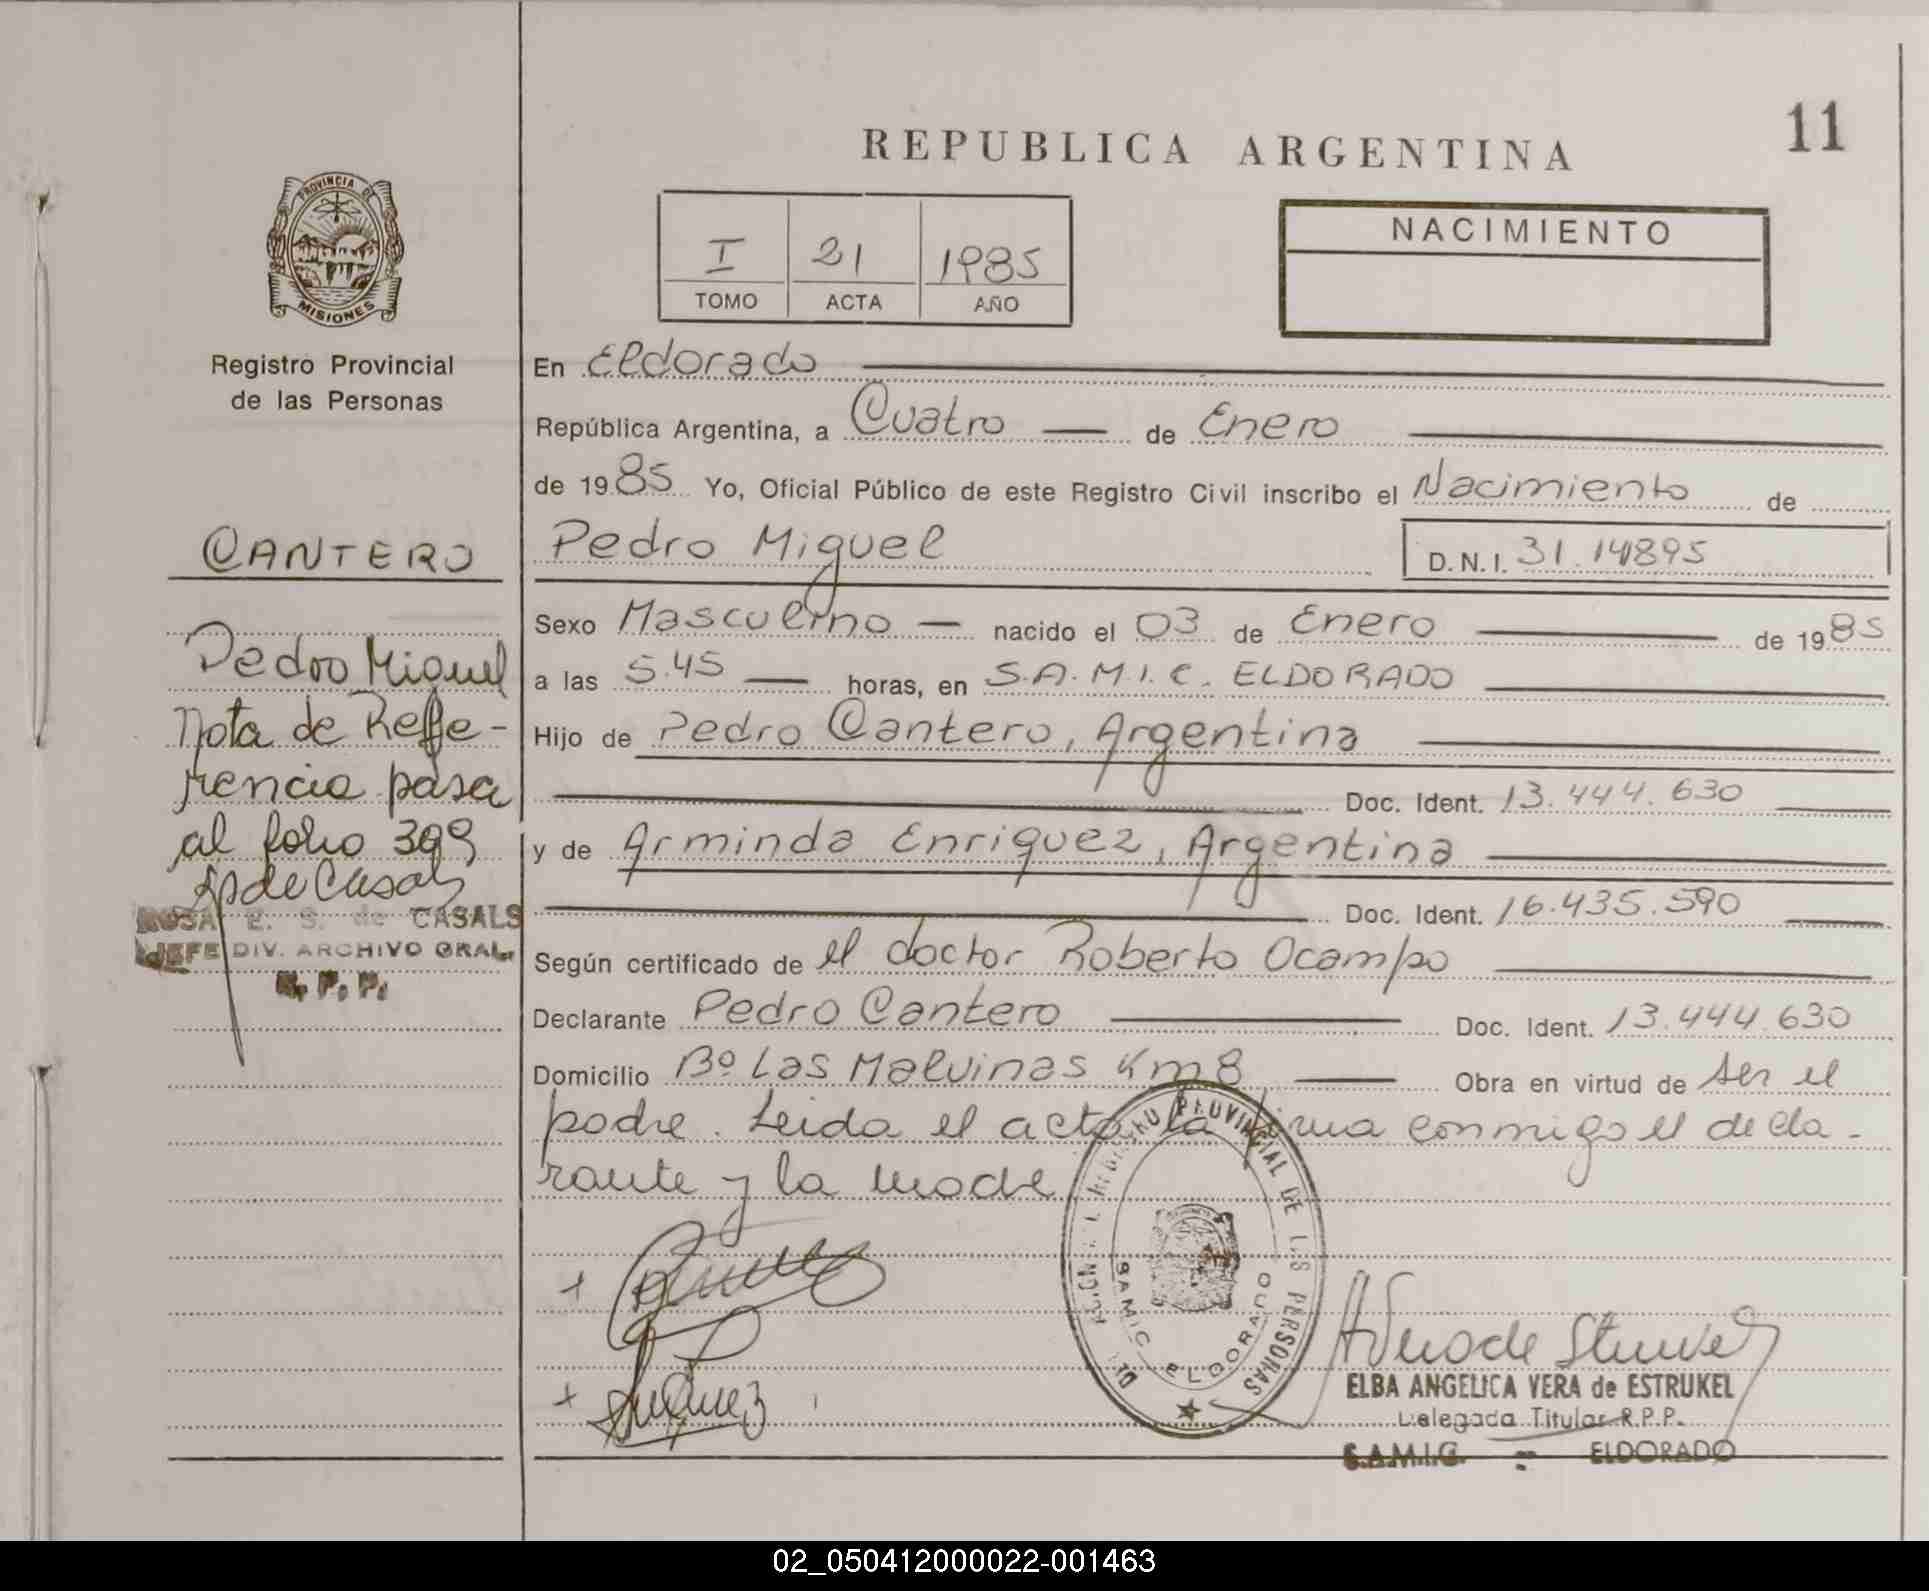 11
REPUBLICA ARGENTINA
PROVINCIA DE
MISIONES
Registro Provincial
de las Personas
I 21 1985
TOMO ACTA AÑO
NACIMIENTO
En Eldorado
República Argentina, a Cuatro de Enero
de 1985 Yo, Oficial Público de este Registro Civil inscribo el Nacimiento de
CANTERO
Pedro Miguel
D.N.I. 31.14895
Sexo Masculino nacido el 03 de Enero de 1985
a las 5.45 horas, en S.A.M.I.C. ELDORADO
Hijo de Pedro Cantero, Argentina
Doc. Ident. 13.444.630
y de Arminda Enriquez, Argentina
Doc. Ident. 16.435.590
Según certificado de el doctor Roberto Ocampo
Declarante Pedro Cantero Doc. Ident. 13.444.630
Domicilio Bº Las Malvinas Km 8 Obra en virtud de ser el
padre. Leida el acta la firma conmigo el decla-
rante y la madre
Pedro Miguel
Nota de Refe-
rencia pasa
al folio 399
ROSA E. S. de CASALS
JEFE DIV. ARCHIVO GRAL.
R. P. P.
REGISTRO PROVINCIAL DE LAS PERSONAS
SAMIC ELDORADO
ELBA ANGELICA VERA de ESTRUKEL
Delegada Titular R.P.P.
S.A.M.I.C. - ELDORADO
02_050412000022-001463